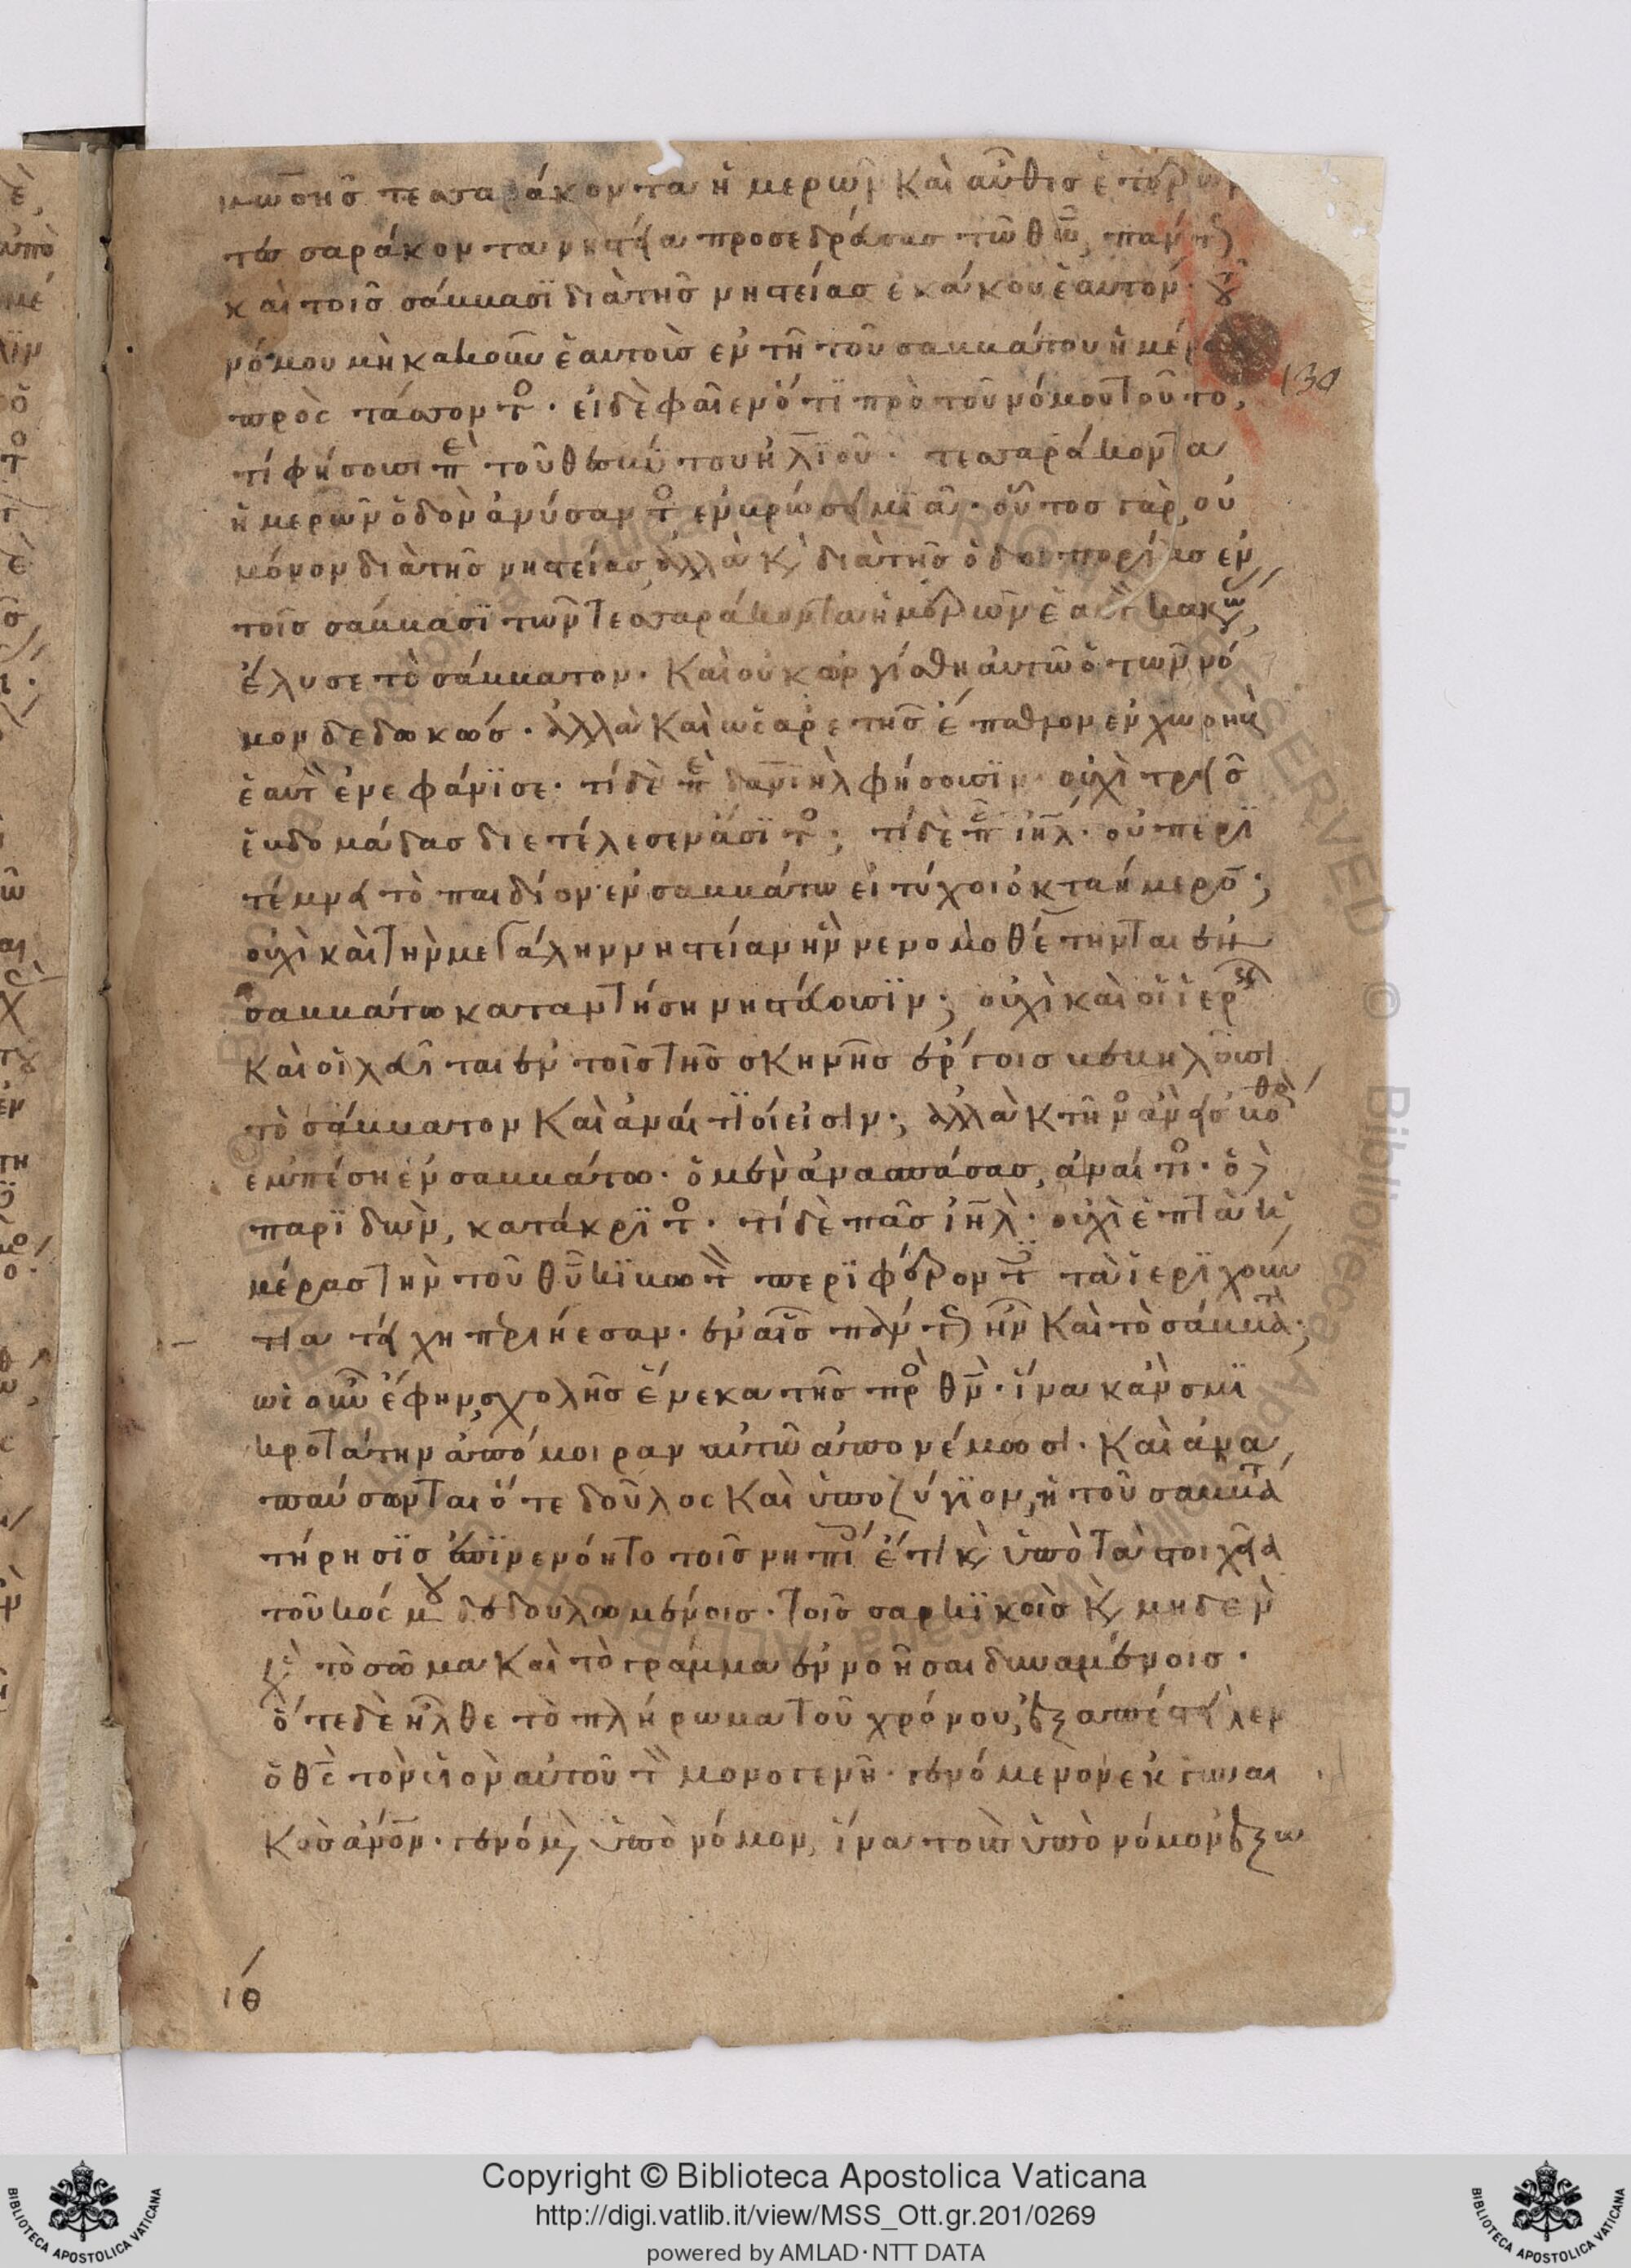 μωσῆς τεσσαράκοντα ἡμερῶν καὶ αὖθις ἑτέρων
τεσσαράκοντα νηστεία προσεδρεύσας τῶ θῶ, πάντ(ως)
καὶ τοῖς σάββασϊ διὰ τῆς νηστείας ἐκάκου ἑαυτόν· τοῦ
νόμου μὴ κακοῦν ἑαυτοὺς ἐν τῆ τοῦ σαββάτου ἡμέρα
προστάσσοντο(ς)· εἰ δὲ φαῖεν ὅτϊ πρὸ τοῦ νόμου τοῦτο,
τί φήσουσι περὶ τοῦ θεσβίτου ἠλϊοῦ· τεσσαράκοντα
ἡμερῶν ὁδὸν ἀνύσαντο(ς) ἐν βρώσει μϊᾶ· οὗτος γὰρ, οὐ
μόνον διὰ τῆς νηστείας ἀλλὰ κ(αὶ) διὰ τῆς ὁδοιπορίας ἐν
τοῖς σάββασϊ τῶν τεσσαράκοντα ἡμερῶν ἑαυτ(ὸν) κακῶν,
ἔλυσε τὸ σάββατον· καὶ οὐκ ὠργίσθη αὐτῶ ὁ τὸν νό
μον δεδωκώς· ἀλλὰ καὶ ὡς ἀρετῆς ἔπαθλον ἐν χωρὴβ
ἑαυτὸν ἐνεφάνϊσε· τί δὲ περὶ δανϊὴλ φήσουσϊν· οὐχὶ τρεῖς
ἑβδομάδας διετέλεσεν ἄσϊτο(ς); τί δὲ πᾶς ἰηλ· οὐ περϊ
τέμνει τὸ παιδίον ἐν σαββάτω εἰ τύχοι ὀκταήμερον;
οὐχὶ καὶ τὴν μεγάλην νηστείαν ἣν νενομοθέτηνται ἐὰν
σαββάτω καταντήση νηστεύουσϊν; οὐχὶ καὶ οἱ ἱερεῖς
καὶ οἱ λευῖται ἐν τοῖς τῆς σκηνῆς ἔργοις βεβηλοῦσι
τὸ σάββατον καὶ ἀναίτϊοί εἰσιν; ἀλλὰ κτῆνος ἂν εἰς βόθρον
ἐμπέση ἐν σαββάτω· ὁ μὲν ἀνασπάσας, ἀναίτιο(ς)· ὁ δὲ
παρϊδὼν, κατάκρϊτο(ς)· τί δὲ πᾶς ἰηλ· οὐχὶ ἑπτὰ ἡ
μέρας τὴν τοῦ θυ κϊβωτὸν περϊφέροντες τὰ ἱερϊχούν
τια τείχη περιήεσαν· ἐν αἷς πάντ(ως) ἦν καὶ τὸ σάββατ(ον);
ὡς οὖν ἔφην, σχολῆς ἕνεκα τῆς πρὸς θν· ἵνα κἂν σμϊ
κροτάτην ἀπόμοιραν αὐτῶ ἀπονέμωσι· καὶ ἀνα
παύσωνται ὅ τε δοῦλος καὶ ὑποζύγϊον, ἡ τοῦ σαββάτ(ου)
τήρησϊς ἐπϊνενόητο τοῖς νηπίοις ἔτι κ(αὶ) ὑπὸ τὰ στοιχεῖα
τοῦ κόσμου δεδουλωμένοις· τοῖς σαρκϊκοῖς κ(αὶ) μηδὲν
ὑπὲρ τὸ σῶμα καὶ τὸ γράμμα ἐννοῆσαι δυναμένοις·
ὅτε δὲ ἦλθε τὸ πλήρωμα τοῦ χρόνου, ἐξαπέστειλεν
ὁ θς τὸν υἱὸν αὐτοῦ τὸν μονογενῆ· γενόμενον ἐκ γυναι
κὸς ἀνον· γενόμενον ὑπὸ νόμον, ἵνα τοὺς ὑπὸ νόμον ἐξα
ιθ
130
Copyright © Biblioteca Apostolica Vaticana
http://digi.vatlib.it/view/MSS_Ott.gr.201/0269
powered by AMLAD·NTT DATA